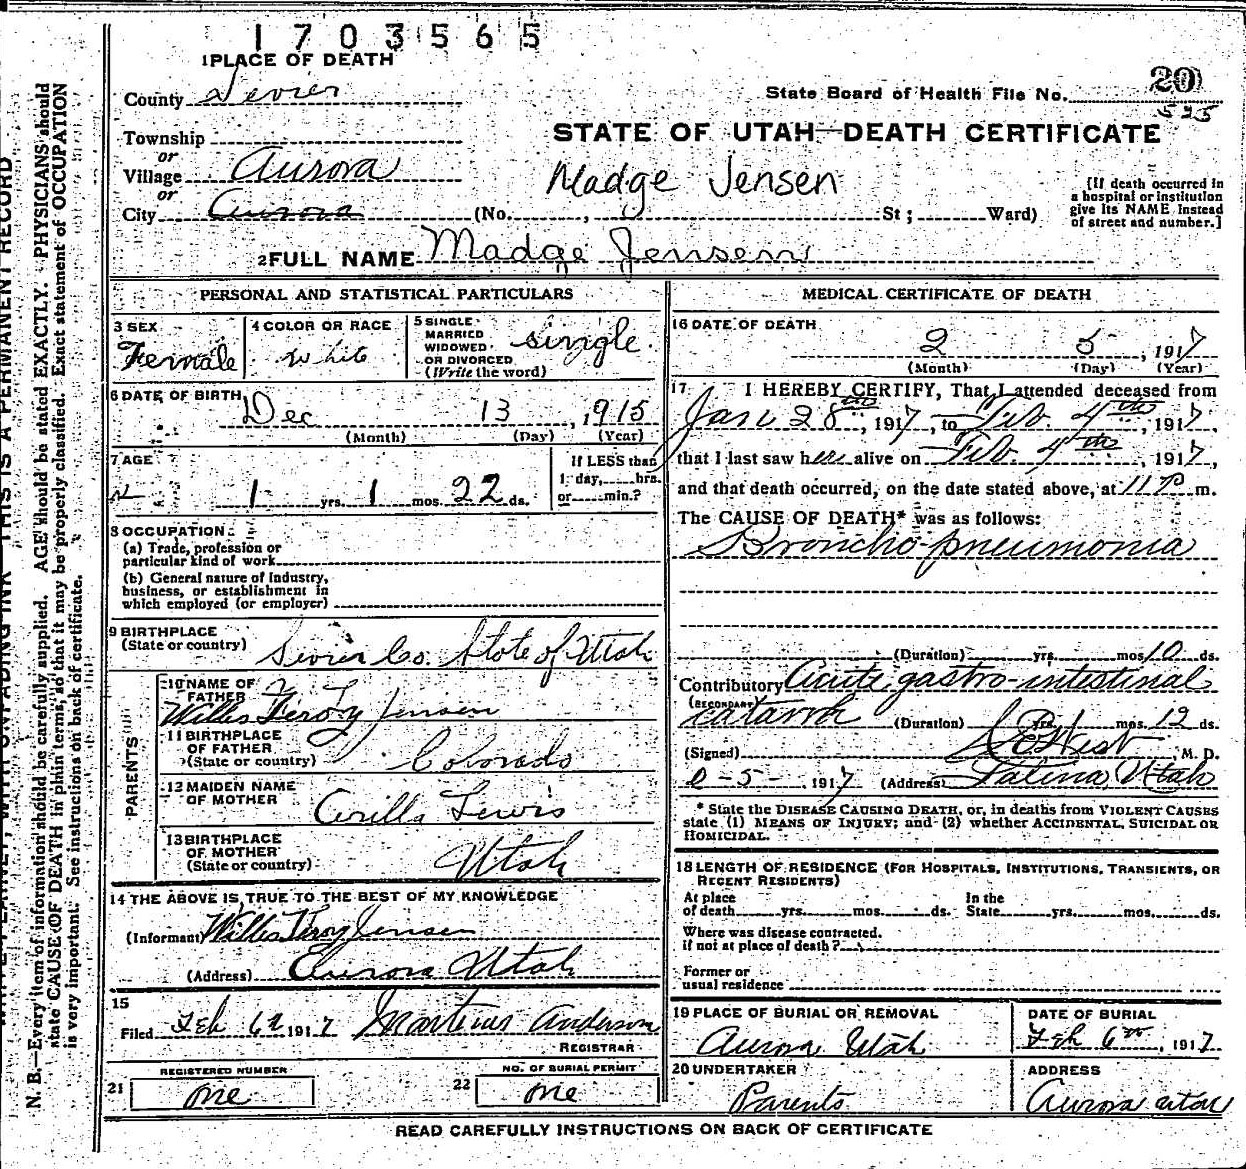 1703565
1 PLACE OF DEATH
County Sevier
State Board of Health File No. 20
535
Township
or
Village Aurora
or
City Aurora
STATE OF UTAH—DEATH CERTIFICATE
Madge Jensen
(No. , St; Ward)
[If death occurred in
a hospital or institution
give its NAME instead
of street and number.]
2 FULL NAME Madge Jensen
PERSONAL AND STATISTICAL PARTICULARS
3 SEX
Female
4 COLOR OR RACE
White
5 SINGLE
MARRIED
WIDOWED
OR DIVORCED
(Write the word)
single.
6 DATE OF BIRTH Dec 13, 1915
(Month) (Day) (Year)
7 AGE
1 yrs. 1 mos. 22 ds.
If LESS than
1 day, hrs.
or min.?
8 OCCUPATION
(a) Trade, profession or
particular kind of work
(b) General nature of Industry,
business, or establishment in
which employed (or employer)
9 BIRTHPLACE
(State or country) Sevier Co. State of Utah
PARENTS
10 NAME OF
FATHER
Willis Leroy Jensen
11 BIRTHPLACE
OF FATHER
(State or country) Colorado
12 MAIDEN NAME
OF MOTHER Lewis
13 BIRTHPLACE
OF MOTHER
(State or country) Utah
14 THE ABOVE IS TRUE TO THE BEST OF MY KNOWLEDGE
(Informant) Willis Leroy Jensen
(Address) Aurora Utah
15
Filed Feb 6th 1917 Martenus Anderson
REGISTRAR
21 REGISTERED NUMBER
one
22 NO. OF BURIAL PERMIT
one
MEDICAL CERTIFICATE OF DEATH
16 DATE OF DEATH
2 5, 1917
(Month) (Day) (Year)
17 I HEREBY CERTIFY, That I attended deceased from
Jan 28th, 1917, to Feb. 4th, 1917,
that I last saw her alive on Feb. 4th, 1917,
and that death occurred, on the date stated above, at 11 P m.
The CAUSE OF DEATH* was as follows:
Broncho-pneumonia
(Duration) yrs. mos 10 ds.
Contributory Acute gastro-intestinal
(SECONDARY)
catarrh (Duration) yrs. 1 mos. 12 ds.
(Signed) West M. D.
2-5-, 1917 (Address) Salina, Utah
* State the DISEASE CAUSING DEATH, or, in deaths from VIOLENT CAUSES
state (1) MEANS OF INJURY; and (2) whether ACCIDENTAL, SUICIDAL OR
HOMICIDAL.
18 LENGTH OF RESIDENCE (FOR HOSPITALS, INSTITUTIONS, TRANSIENTS, OR
RECENT RESIDENTS)
At place
of death yrs. mos. ds.
In the
State yrs. mos. ds.
Where was disease contracted,
if not at place of death?
Former or
usual residence
19 PLACE OF BURIAL OR REMOVAL
Aurora Utah
DATE OF BURIAL
Feb 6th, 1917
20 UNDERTAKER
Parents
ADDRESS
Aurora Utah
READ CAREFULLY INSTRUCTIONS ON BACK OF CERTIFICATE
WRITE PLAINLY, WITH UNFADING INK THIS IS A PERMANENT RECORD
N. B.—Every item of information should be carefully supplied. AGE should be stated EXACTLY. PHYSICIANS should
state CAUSE OF DEATH in plain terms, so that it may be properly classified. Exact statement of OCCUPATION
is very important. See instructions on back of certificate.